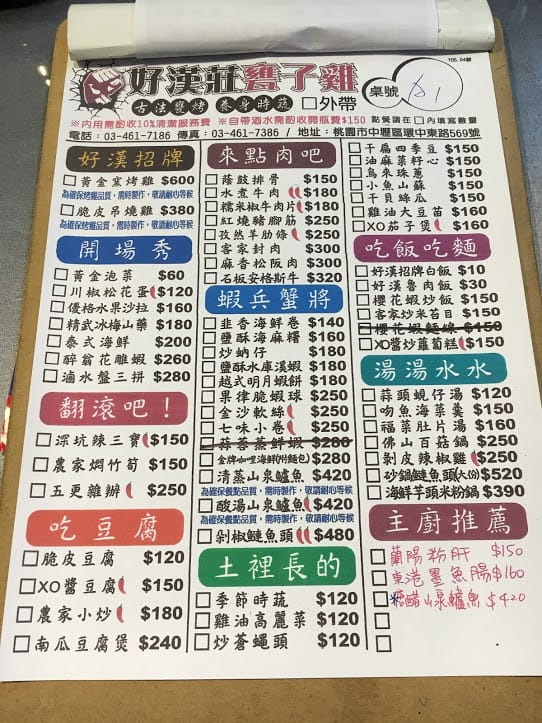 105.04製
好漢莊甕了雞
古法甕烤 養身時蔬 □外帶
桌號
※內用需酌收10%清潔服務費 ※自帶酒水需酌收開瓶費$150 點餐請在□內填寫數量
電話：03-461-7186 傳真：03-461-7386 / 地址：桃園市中壢區環中東路569號
好漢招牌
□黃金窯烤雞 $600
為確保烤雞品質，需時製作，敬請耐心等候
□脆皮吊燒雞 $380
為確保烤雞品質，需時製作，敬請耐心等候
開場秀
□黃金泡菜 $60
□川椒松花蛋 $120
□優格水果沙拉 $160
□精武冰梅山藥 $180
□泰式海鮮 $200
□醉翁花雕蝦 $260
□滷水盤三拼 $280
翻滾吧！
□深坑辣三寶 $150
□農家燜竹筍 $150
□五更雜辦 $250
吃豆腐
□脆皮豆腐 $120
□XO醬豆腐 $150
□農家小炒 $180
□南瓜豆腐煲 $240
來點肉吧
□蔭鼓排骨 $150
□水煮牛肉 $180
□糯米椒牛肉片 $180
□紅燒豬腳筋 $250
□孜然羊肋條 $250
□客家封肉 $300
□麻香松阪肉 $300
□石板安格斯牛 $320
蝦兵蟹將
□韭香海鮮卷 $140
□鹽酥海麻糬 $160
□炒蚋仔 $180
□鹽酥水庫溪蝦 $180
□越式明月蝦餅 $180
□果律脆蝦球 $250
□金沙軟絲 $250
□七味小卷 $250
□蒜蓉蒸鮮蝦 $280
□金牌咖哩海鮮(附麵包) $280
□清蒸山泉鱸魚 $420
為確保餐點品質，需時製作，敬請耐心等候
□酸湯山泉鱸魚 $420
為確保餐點品質，需時製作，敬請耐心等候
□剁椒鰱魚頭 $480
土裡長的
□季節時蔬 $120
□雞油高麗菜 $120
□炒蒼蠅頭 $120
□干扁四季豆 $150
□油麻菜籽心 $150
□烏來珠蔥 $150
□小魚山蘇 $150
□干貝絲瓜 $150
□雞油大豆苗 $160
□XO茄子煲 $160
吃飯吃麵
□好漢招牌白飯 $10
□好漢魯肉飯 $30
□櫻花蝦炒飯 $150
□客家炒米苔目 $150
□櫻花蝦麵線 $150
□XO醬炒蘿蔔糕 $150
湯湯水水
□蒜頭蜆仔湯 $120
□吻魚海菜羹 $150
□福菜肚片湯 $160
□佛山百菇鍋 $250
□剝皮辣椒雞 $250
□砂鍋鰱魚頭(大份) $520
□海鮮芋頭米粉鍋 $390
主廚推薦
□蘭陽粉肝 $150
□東港墨魚腸 $160
□糖醋山泉鱸魚 $420
□
□